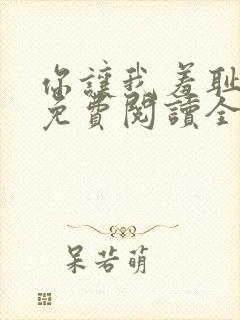 你讓我羞恥
免費閱讀全
呆若萌